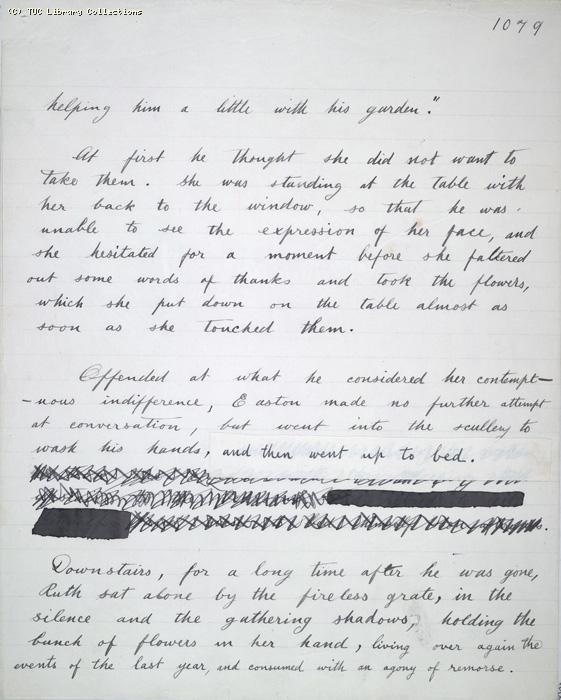 (C) TUC Library Collections
1079
helping him a little with his garden."
At first he thought she did not want to
take them. She was standing at the table with
her back to the window, so that he was
unable to see the expression of her face, and
she hesitated for a moment before she faltered
out some words of thanks and took the flowers,
which she put down on the table almost as
soon as she touched them.
Offended at what he considered her contempt-
-uous indifference, Easton made no further attempt
at conversation, but went into the scullery to
wash his hands, and then went up to bed.
Downstairs, for a long time after he was gone,
Ruth sat alone by the fireless grate, in the
silence and the gathering shadows, holding the
bunch of flowers in her hand, living over again the
events of the last year, and consumed with an agony of remorse.